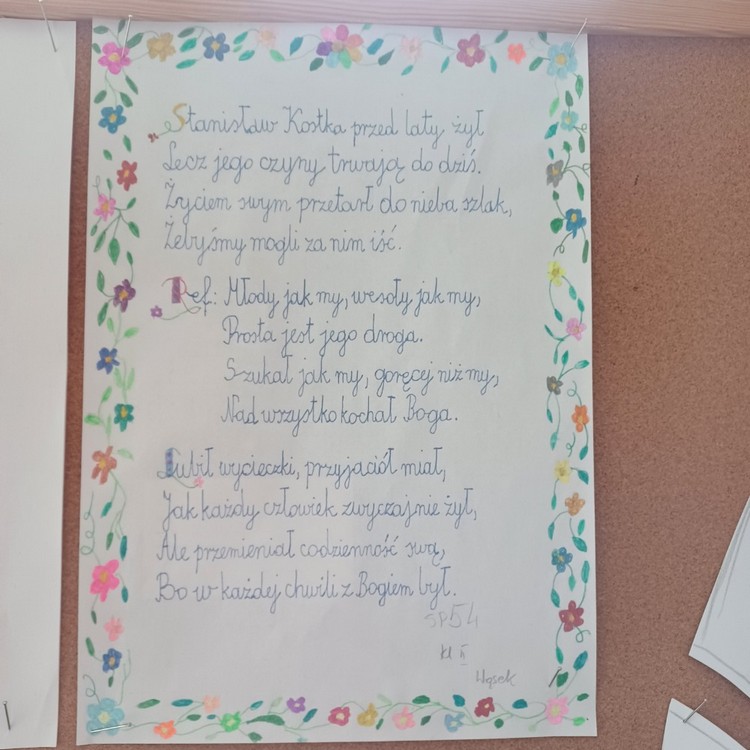 Stanisław Kostka przed laty żył
Lecz jego czyny trwają do dziś.
Życiem swym przetarł do nieba szlak,
Żebyśmy mogli za nim iść.
Ref: Młody jak my, wesoły jak my,
Prosta jest jego droga.
Szukał jak my, goręcej niż my,
Nad wszystko kochał Boga.
Lubił wycieczki, przyjaciół miał,
Jak każdy człowiek zwyczajnie żył,
Ale przemieniał codzienność swą,
Bo w każdej chwili z Bogiem był.
SP54
kl